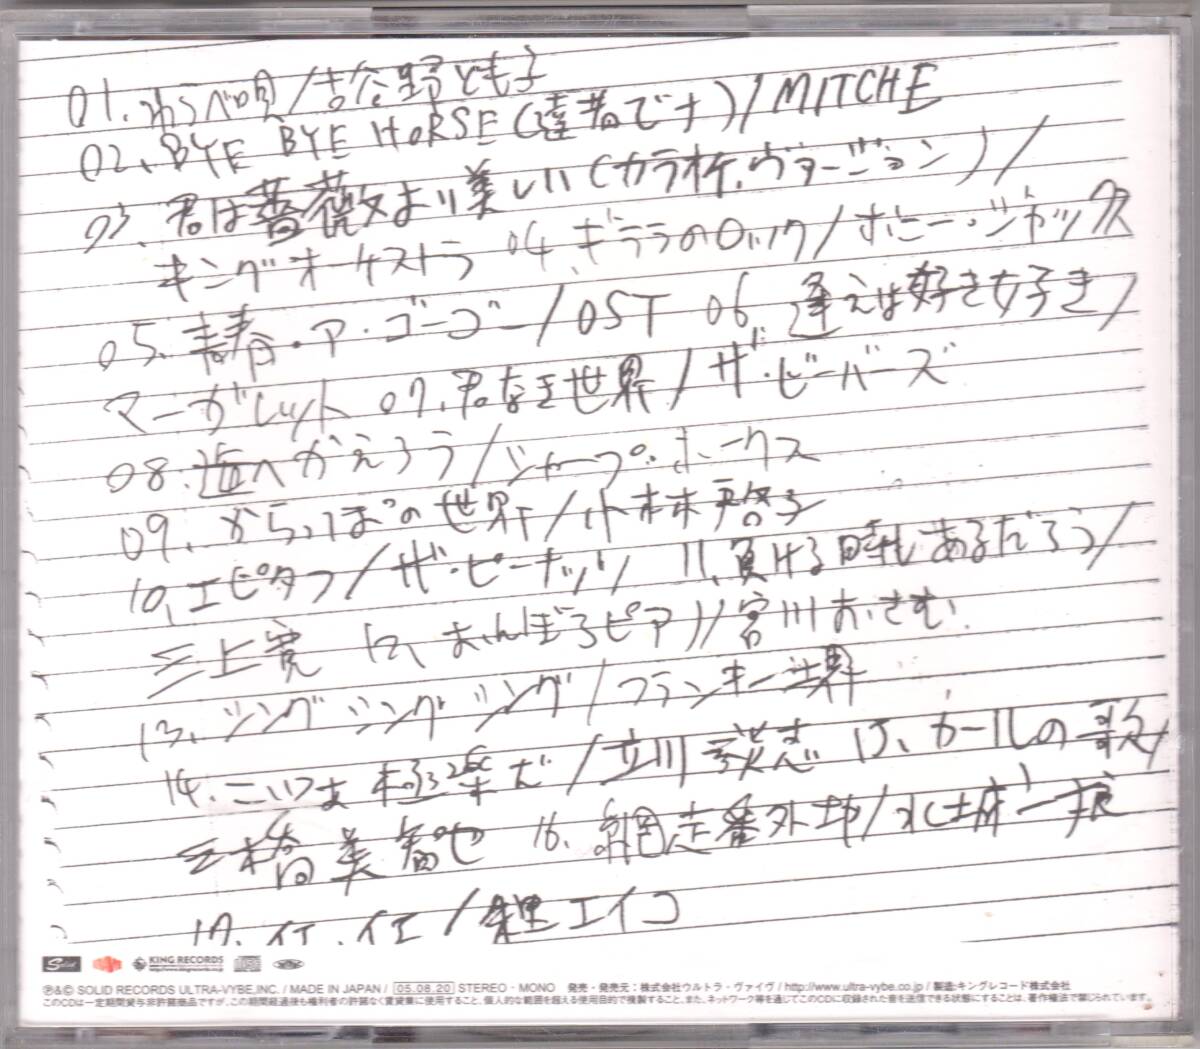 01. わらべ唄/吉谷野とも子
02. BYE BYE HORSE(達者でナ)/MITCHE
03. 君は薔薇より美しい(カラオケ.ヴァージョン)/
キングオーケストラ 04. ギララのロック/ボニー・ジャックス
05. 青春・ア・ゴーゴー/OST 06. 逢えば好き好き/
マーガレット 07. 君なき世界/ザ・ビーバーズ
08. 海へかえろう/シャープ・ホークス
09. からっぽの世界/小林啓子
10. エピタフ/ザ・ピーナッツ 11. 負ける時もあるだろう/
三上寛 12. おんぼろピアノ/宮川おさむ
13. シング シング シング/フランキー堺
14. こいつは極楽だ/立川談志 15. カールの歌/
三橋美智也 16. 網走番外地/水城一狼
17. イエ.イエ/朱里エイコ
Solid KING RECORDS
http://www.kingrecords.co.jp
℗&© SOLID RECORDS ULTRA-VYBE,INC. / MADE IN JAPAN / 05.08.20 STEREO・MONO 発売・発売元:株式会社ウルトラ・ヴァイヴ / http://www.ultra-vybe.co.jp / 製造:キングレコード株式会社
このCDは一定期間貸与非許諾商品ですが、この期間経過後も権利者の許諾なく賃貸業に使用すること、個人的な範囲を超える使用目的で複製すること、また、ネットワーク等を通じてこのCDに収録された音を送信できる状態にすることは、著作権法で禁じられています。